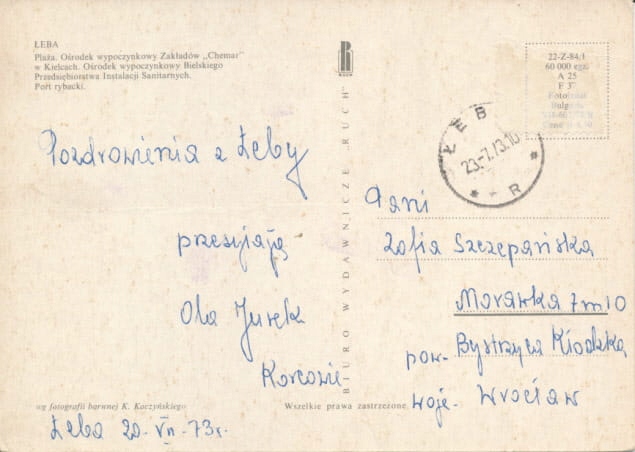 ŁEBA
Plaża. Ośrodek wypoczynkowy Zakładów „Chemar”
w Kielcach. Ośrodek wypoczynkowy Bielskiego
Przedsiębiorstwa Instalacji Sanitarnych.
Port rybacki.
R
RUCH
22-Z-84/1
60 000 egz.
A 25
Bulgaria
ŁEB
23.-7.73.10
* - R *
Pozdrowienia z Łeby
przesyłają
Ola Jurek
BIURO WYDAWNICZE „RUCH”
Pani
Zofia Szczepańska
Morawka 7 m 10
pow. Bystrzyca Kłodzka
woje. Wrocław
wg fotografii barwnej K. Kaczyńskiego
Wszelkie prawa zastrzeżone
Łeba 20. VII - 73 r.